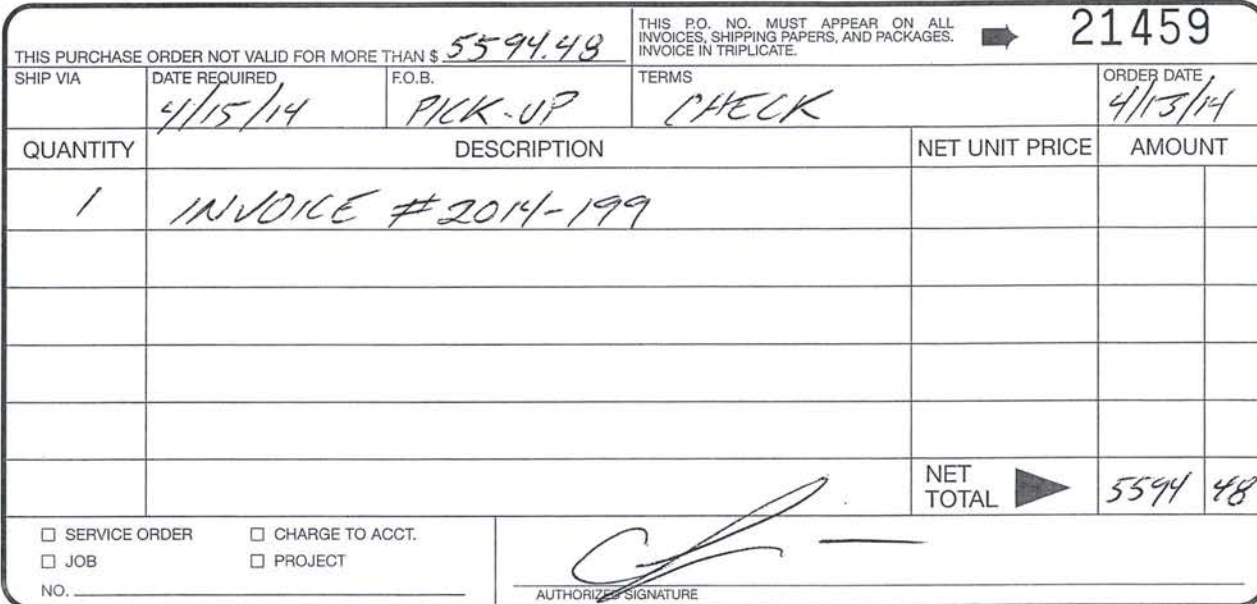 THIS PURCHASE ORDER NOT VALID FOR MORE THAN $ 5594.48
THIS P.O. NO. MUST APPEAR ON ALL
INVOICES, SHIPPING PAPERS, AND PACKAGES.
INVOICE IN TRIPLICATE.
21459
SHIP VIA DATE REQUIRED F.O.B. TERMS ORDER DATE
4/15/14 PICK-UP CHECK 4/13/14
QUANTITY DESCRIPTION NET UNIT PRICE AMOUNT
1 INVOICE #2014-199
NET
TOTAL 5594 48
☐ SERVICE ORDER ☐ CHARGE TO ACCT.
☐ JOB ☐ PROJECT
NO.
AUTHORIZED SIGNATURE